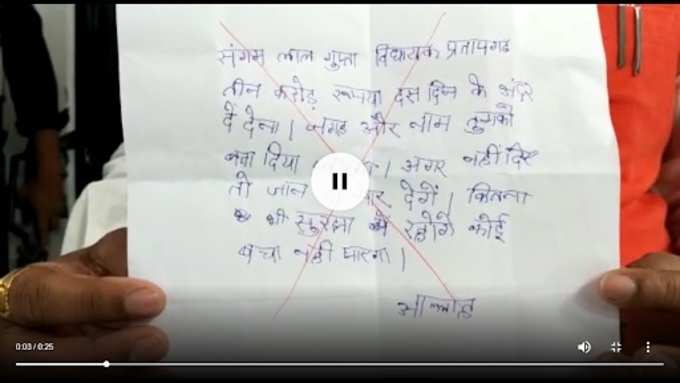 संगम लाल गुप्ता विधायक प्रतापगढ
तीन करोड़ रूपया दस दिन के अंदर
दे देना। जगह और नाम तुमको
बता दिया । अगर नहीं दिए
तो जान मार देगें। कितना
भी सुरक्षा में रहोगे कोई
बचा नहीं पाएगा।
0:03 / 0:25